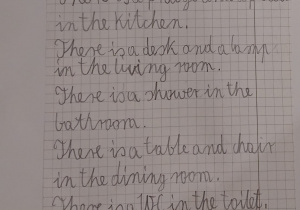 in the kitchen.
There is a desk and a lamp
in the living room.
There is a shower in the
bathroom.
There is a table and chair
in the dining room.
There is a WC in the toilet.